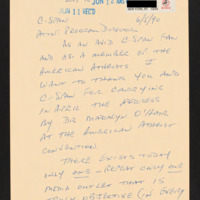 JUN 12 1990
JUN 11 REC'D
C-SPAN 6/8/90
ATTN: PROGRAM DIRECTOR
AS AN AVID C-SPAN FAN
AND AS A MEMBER OF THE
AMERICAN ATHEISTS I
WANT TO THANK YOU AND
C-SPAN FOR CARRYING
IN APRIL THE ADDRESS
BY DR MADALYN O'HAIR
AT THE AMERICAN ATHEIST
CONVENTION.
THERE EXISTS TODAY
ONLY ONE - REPEAT ONLY ONE
MEDIA OUTLET THAT IS
TRULY OBJECTIVE (IN EVERY